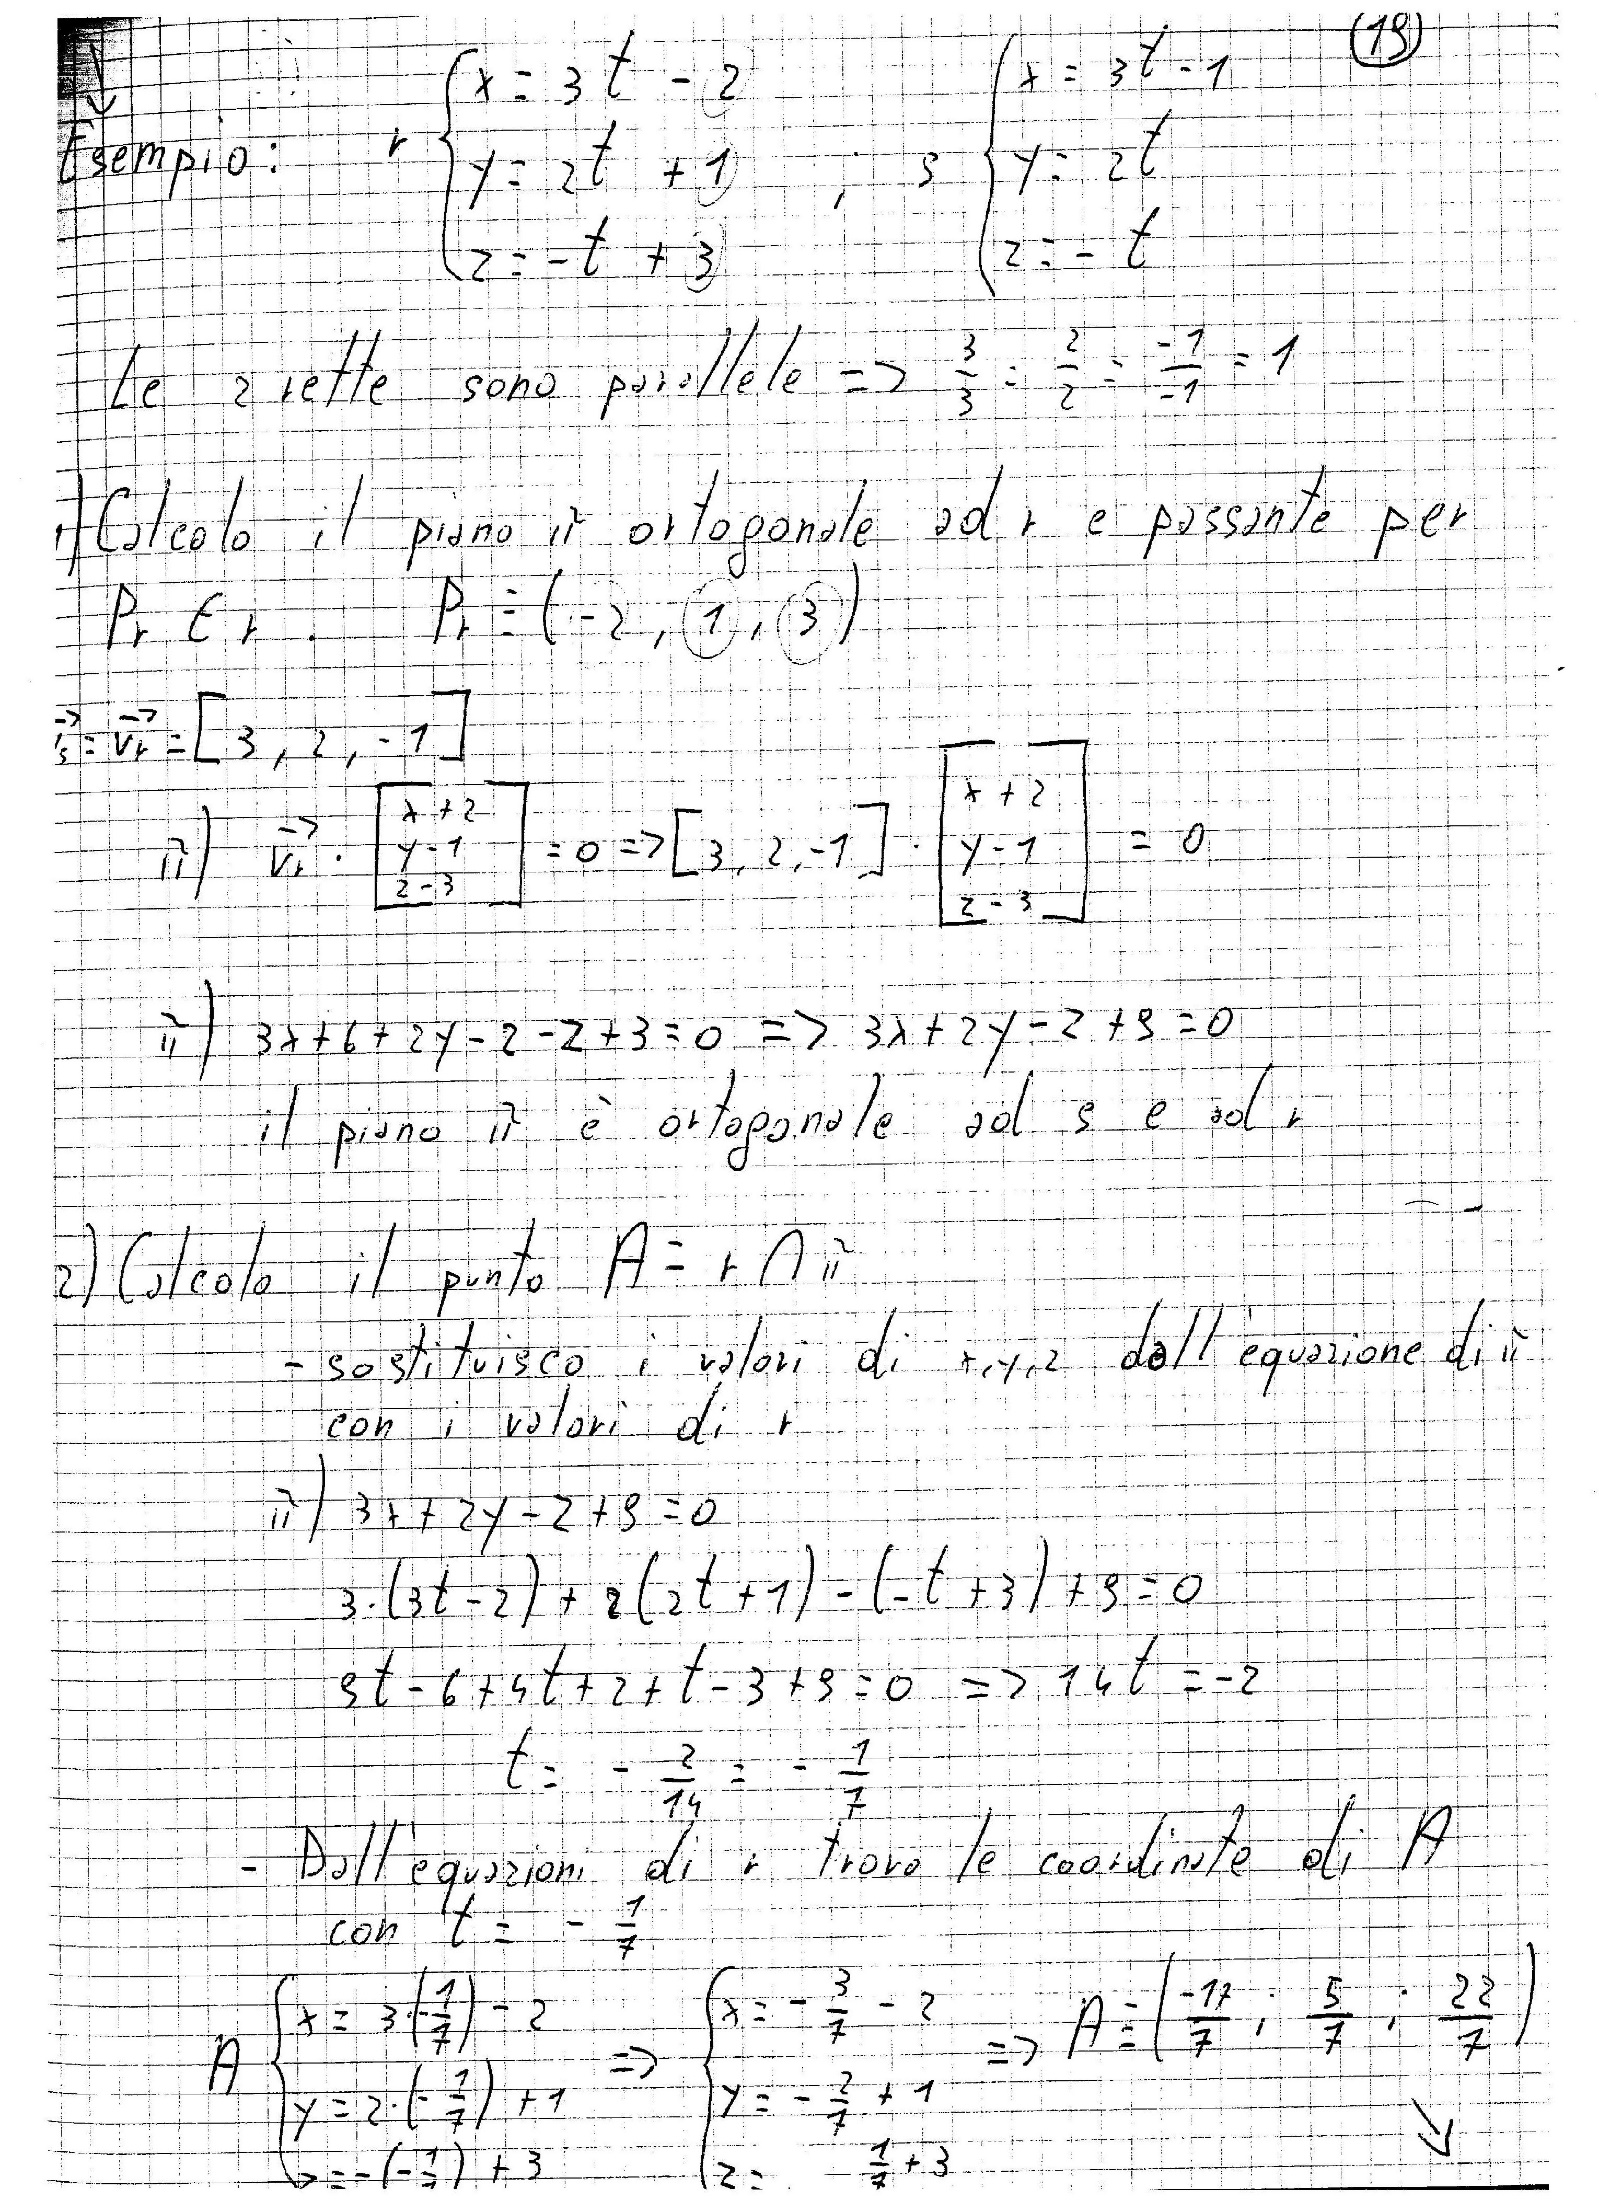 (19)
Esempio: r { x = 3t - 2 ; s { x = 3t - 1
y = 2t + 1 y = 2t
z = -t + 3 z = -t
Le 2 rette sono parallele => 3/3 = 2/2 = -1/-1 = 1
1) Calcolo il piano π ortogonale ad r e passante per
Pr ∈ r. Pr ≡ (-2, 1, 3)
vs = vr = [3, 2, -1]
π) vr · [x+2 y-1 z-3] = 0 => [3, 2, -1] · [x+2 y-1 z-3] = 0
π) 3x + 6 + 2y - 2 - z + 3 = 0 => 3x + 2y - z + 9 = 0
il piano π è ortogonale ad s e ad r
2) Calcolo il punto A = r ∩ π
- sostituisco i valori di x,y,z dall'equazione di π
con i valori di r
π) 3x + 2y - z + 9 = 0
3·(3t-2) + 2(2t+1) - (-t+3) + 9 = 0
9t - 6 + 4t + 2 + t - 3 + 9 = 0 => 14t = -2
t = - 2/14 = - 1/7
- Dall'equazioni di r trovo le coordinate di A
con t = - 1/7
A { x = 3·(-1/7) - 2 => { x = - 3/7 - 2 => A ≡ (-17/7 ; 5/7 ; 22/7)
y = 2·(-1/7) + 1 y = - 2/7 + 1
z = -(-1/7) + 3 z = 1/7 + 3